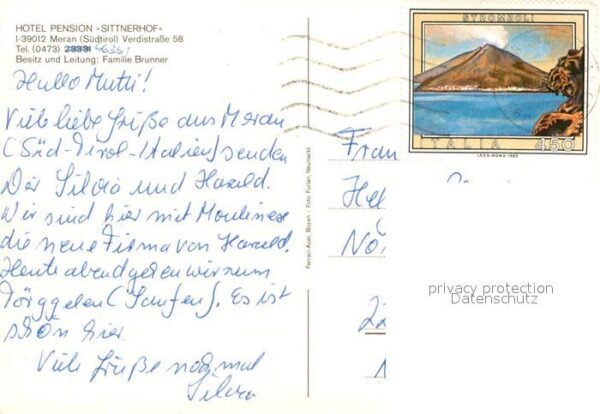 HOTEL PENSION «SITTNERHOF»
I-39012 Meran (Südtirol) Verdistraße 58
Tel. (0473) 46331
Besitz und Leitung: Familie Brunner
Hallo Mutti!
Viele liebe Grüße aus Meran
(Süd-Tirol-Italien) senden
Dir Silvia und Harald.
Wir sind hier mit Moulinex
die neue Firma von Harald.
Heute abend gehen wir zum
Törggelen (Saufen). Es ist
schön hier.
Viele Grüße nochmal
Silvia
Ferrari-Auer, Bozen - Foto Fuchs, Neumarkt
STROMBOLI
ITALIA 450
Fran
Hel
No
22
privacy protection
Datenschutz